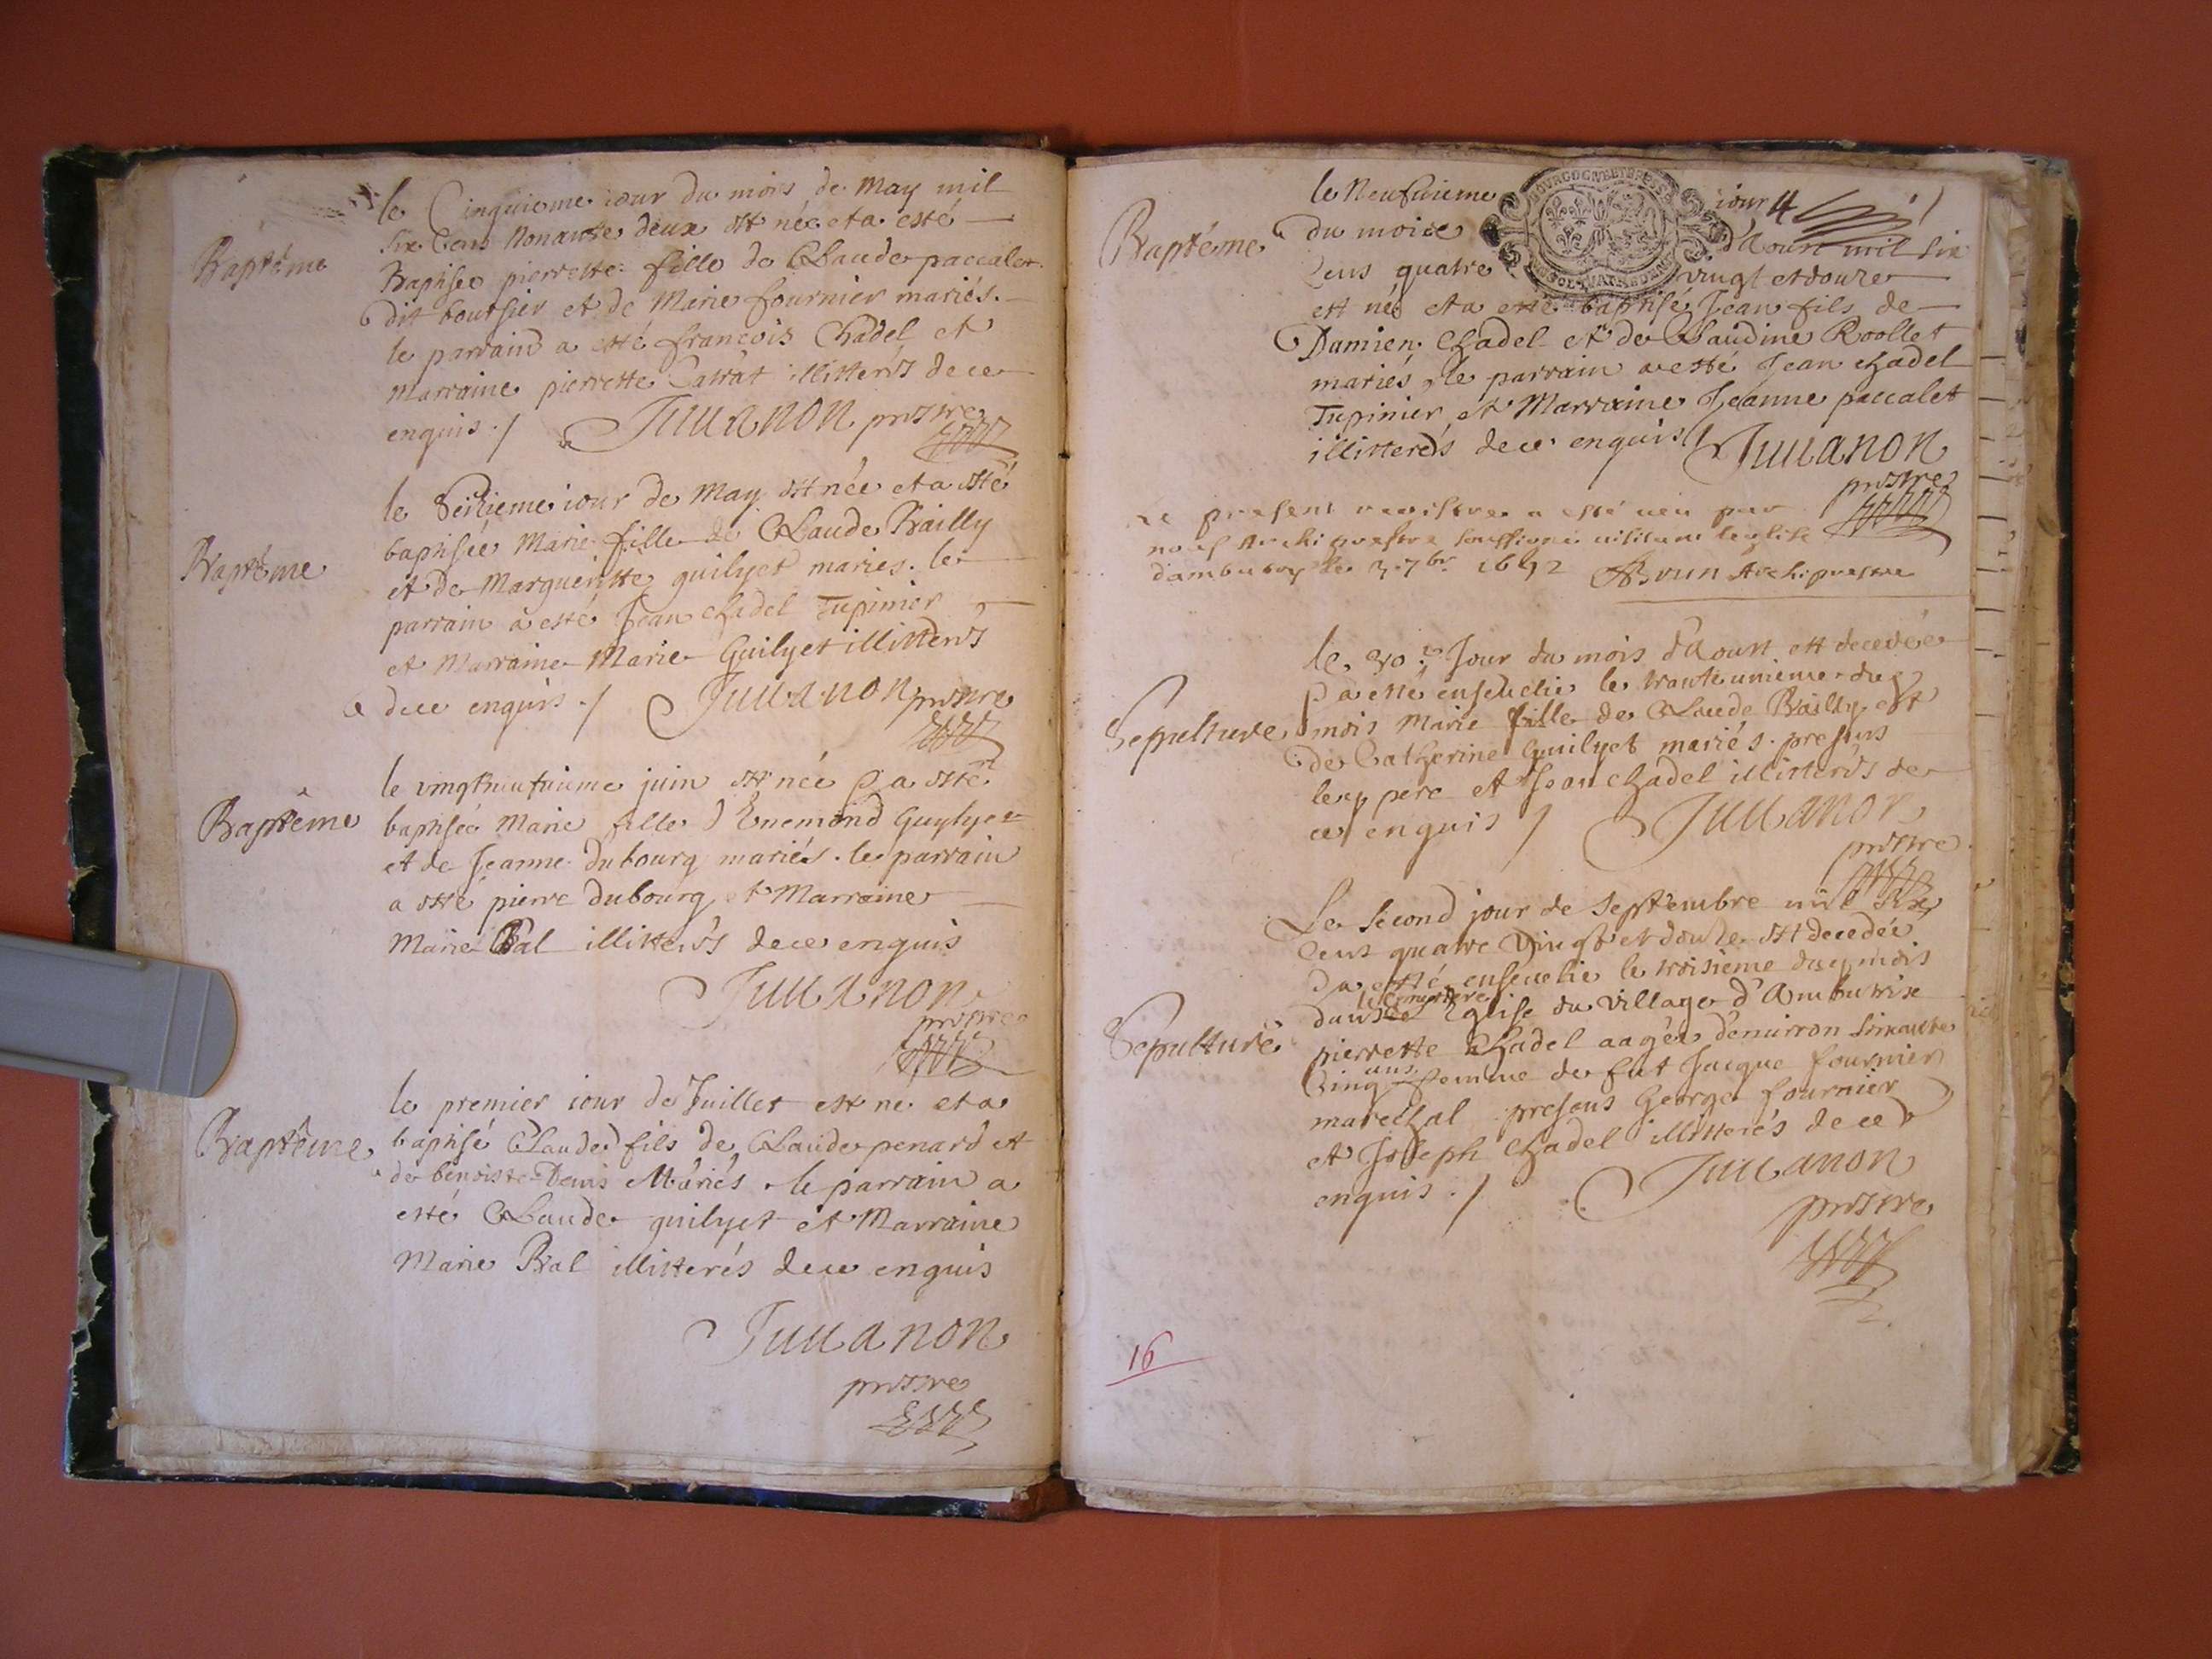 le Cinquieme iour du mois de May mil
six Cens Nonante deux est née et a esté
Baptême
Baptisée pierrette fille de Claude paccalet
dit boutsier et de Marie fournier mariés.
le parrain a esté françois Chadel et
Marraine pierrette illitterés de ce
enquis ./ Juuanon prostre
le Seizieme iour de May est née et a esté
Baptême
baptisée Marie fille de Claude Bailly
et de Margueritte guilyet mariés. le
parrain a esté Jean chadel Tupinier
et Marraine Marie Guilyet illitterés
de ce enquis ./ Juuanon prostre
le vingtneufuieme juin est née & a esté
Baptême
baptisée Marie fille d Enemond Guylyet
et de Jeanne dubourg mariés. le parrain
a esté pierre Dubourg et Marraine
Marie Bal illitterés de ce enquis
Juuanon
prostre
le premier iour de Juillet est né et a
Baptême
baptisé Claude fils de Claude penard et
de benoiste Denis Mariés. le parrain a
esté Claude guilyet et Marraine
Marie Bal illitterés de ce enquis
Juuanon
prostre
le Neufuieme iour 4
Baptême
du moice d'Aoust mil six
Cens quatre vingt et douze
est né et a esté baptisé Jean fils de
Damien Chadel et de Claudine Roollet
mariés, le parrain a esté Jean chadel
Tupinier et Marraine Jeanne paccalet
illitterés de ce enquis / Juuanon
prostre
Le present registre a esté ueu par
nous Archiprestre soussigné uisitant leglise
dambutrix le 3. 7br. 1692 Brun Archiprestre
le 30e Jour du mois d'Aoust est decedée
& a esté enseuelie le trante unieme dud
Sepulture
mois Marie fille de Claude Bailly et
de Catherine Guilyet mariés. presens
led pere et Jean chadel illitterés de
ce enquis / Juuanon
prostre
Le second jour de Septembre mil six
Cens quatre Vingt et douze est decedée
& a esté enseuelie le troisieme dud mois
le Cimetiere
dans l'Eglise du village d'Ambutrix
Sepulture
pierrette chadel aagée d'enuirron soixante
Cinq ans femme de fut Jacque fournier
marechal presens George fournier
et Joseph chadel illitterés de ce
enquis ./ Juuanon
prostre
16